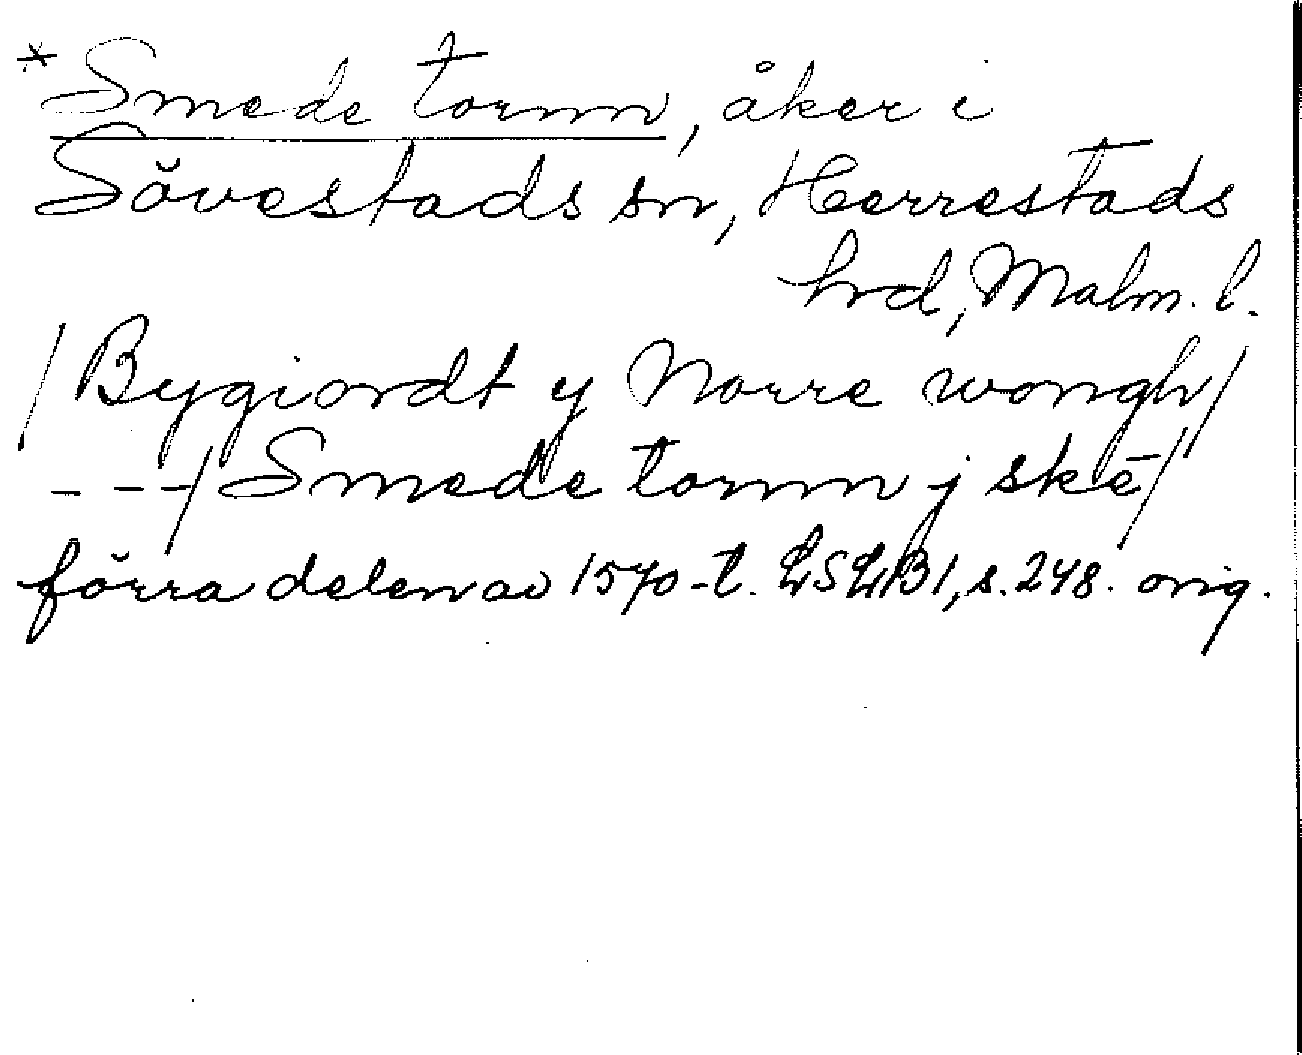 *Smede tornn, åker i
Sövestads sn, Herrestads
hrd, Malm. l.
/Bygiordt y Norre wongh/
---/Smede tornn j skē/
förra delen av 1570-t. LSLB1, s. 248. orig.